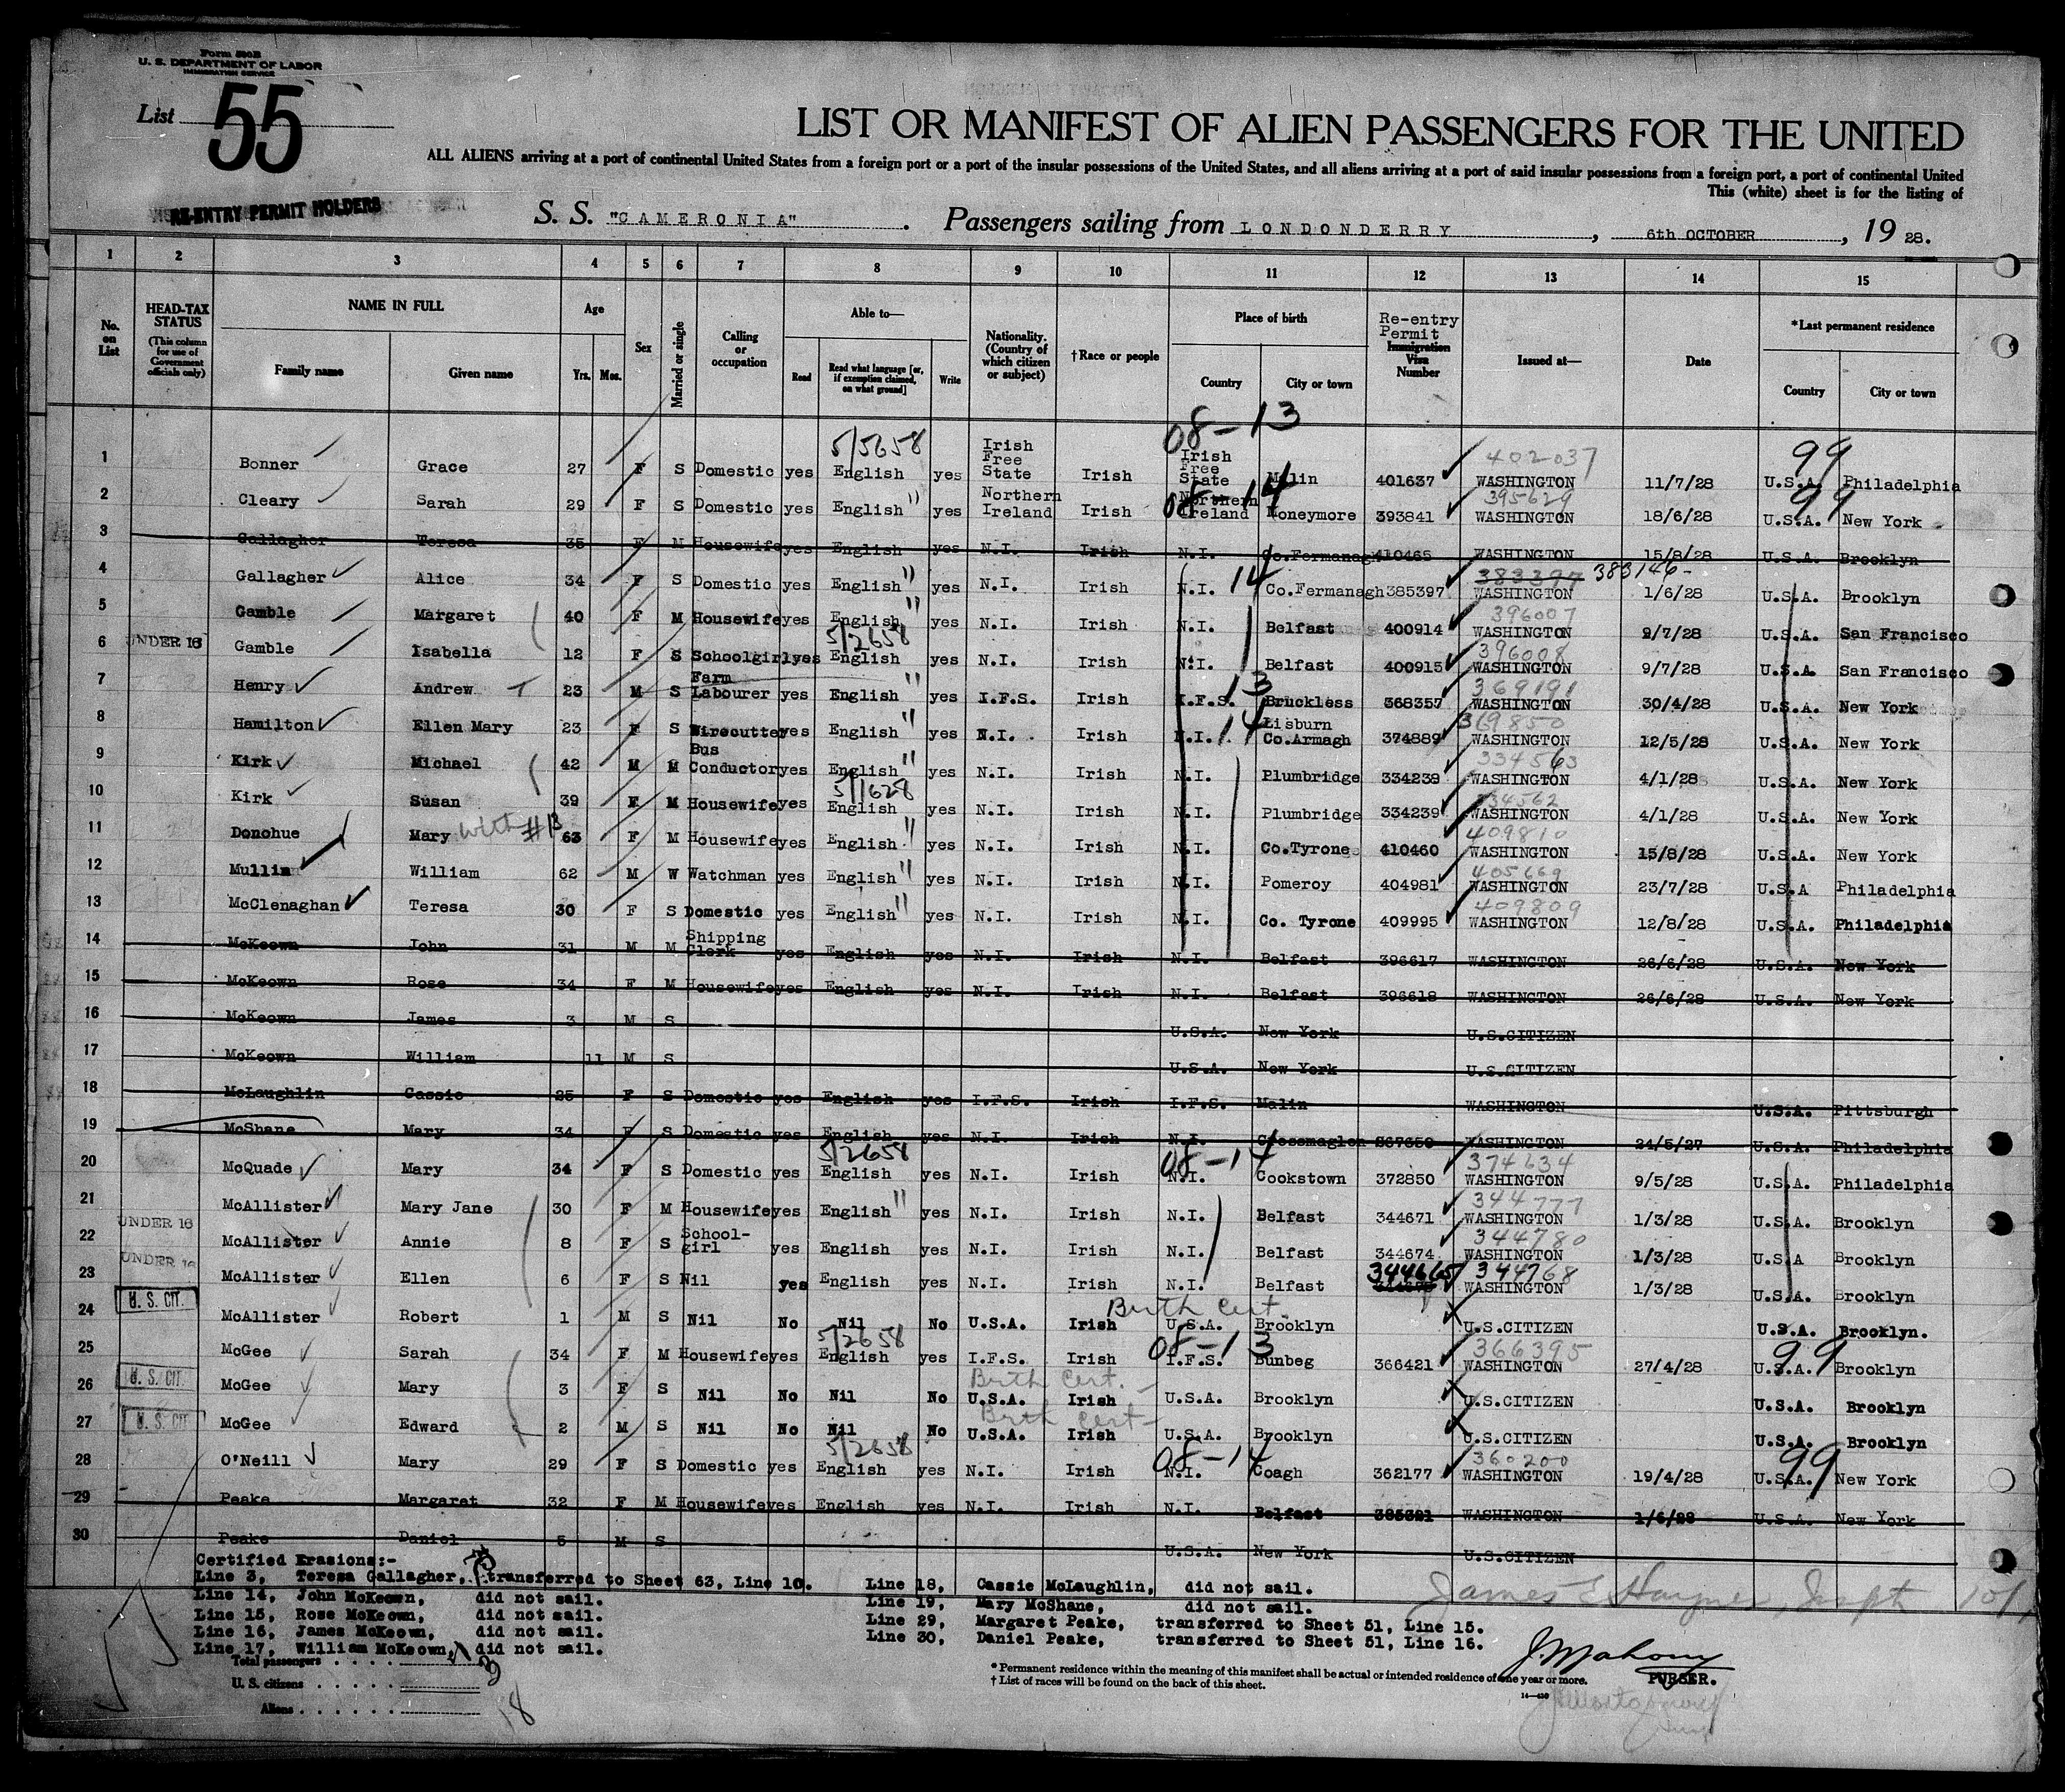 Form 500B
U. S. DEPARTMENT OF LABOR
IMMIGRATION SERVICE
List 55
LIST OR MANIFEST OF ALIEN PASSENGERS FOR THE UNITED
ALL ALIENS arriving at a port of continental United States from a foreign port or a port of the insular possessions of the United States, and all aliens arriving at a port of said insular possessions from a foreign port, a port of continental United
This (white) sheet is for the listing of
RE-ENTRY PERMIT HOLDERS
S. S. "CAMERONIA". Passengers sailing from LONDONDERRY, 6th OCTOBER, 19 28.
1 2 3 4 5 6 7 8 9 10 11 12 13 14 15
No. on List
HEAD-TAX STATUS (This column for use of Government officials only)
NAME IN FULL Family name Given name
Age Yrs. Mos.
Sex
Married or single
Calling or occupation
Able to— Read Read what language [or, if exemption claimed, on what ground] Write
Nationality. (Country of which citizen or subject)
†Race or people
Place of birth Country City or town
Re-entry Permit Immigration Visa Number
Issued at—
Date
*Last permanent residence Country City or town
08-13
1 Bonner Grace 27 F S Domestic yes 5/5658 English yes Irish Free State Irish Irish Free State Malin 401637 402037 WASHINGTON 11/7/28 99 U.S.A. Philadelphia
2 Cleary Sarah 29 F S Domestic yes English " yes Northern Ireland Irish 08-14 Northern Ireland Moneymore 393841 395629 WASHINGTON 18/6/28 99 U.S.A. New York
3 Gallagher Teresa 35 F M Housewife yes English yes N.I. Irish N.I. Co.Fermanagh 410465 WASHINGTON 15/8/28 U.S.A. Brooklyn
4 Gallagher Alice 34 F S Domestic yes English " yes N.I. Irish N.I. 14 Co.Fermanagh 385397 383397 383146- WASHINGTON 1/6/28 U.S.A. Brooklyn
5 Gamble Margaret 40 F M Housewife yes English " yes N.I. Irish N.I. Belfast 400914 396007 WASHINGTON 9/7/28 U.S.A. San Francisco
6 UNDER 16 Gamble Isabella 12 F S Schoolgirl yes 5/2658 English yes N.I. Irish N.I. Belfast 400915 396008 WASHINGTON 9/7/28 U.S.A San Francisco
7 Henry Andrew 23 M S Farm Labourer yes English " yes I.F.S. Irish I.F.S. 13 Bruckless 368357 369191 WASHINGTON 30/4/28 U.S.A. New York
8 Hamilton Ellen Mary 23 F S Wirecutter yes English " yes N.I. Irish N.I. 14 Lisburn Co.Armagh 374889 369850 WASHINGTON 12/5/28 U.S.A. New York
9 Kirk Michael 42 M M Bus Conductor yes English " yes N.I. Irish N.I. Plumbridge 334238 334563 WASHINGTON 4/1/28 U.S.A. New York
10 Kirk Susan 39 F M Housewife yes 5/1628 English yes N.I. Irish N.I. Plumbridge 334239 334562 WASHINGTON 4/1/28 U.S.A. New York
11 Donohue Mary with #13 63 F M Housewife yes English " yes N.I. Irish N.I. Co.Tyrone 410460 409810 WASHINGTON 15/8/28 U.S.A. New York
12 Mullin William 62 M W Watchman yes English " yes N.I. Irish N.I. Pomeroy 404981 405669 WASHINGTON 23/7/28 U.S.A Philadelphia
13 McClenaghan Teresa 30 F S Domestic yes English " yes N.I. Irish N.I. Co. Tyrone 409995 409809 WASHINGTON 12/8/28 U.S.A. Philadelphia
14 McKeown John 31 M M Shipping Clerk yes English yes N.I. Irish N.I. Belfast 396617 WASHINGTON 26/6/28 U.S.A. New York
15 McKeown Rose 34 F M Housewife yes English yes N.I. Irish N.I. Belfast 396618 WASHINGTON 26/6/28 U.S.A. New York
16 McKeown James 3 M S U.S.A. New York U.S.CITIZEN
17 McKeown William 11 M S U.S.A. New York U.S.CITIZEN
18 McLaughlin Cassie 25 F S Domestic yes English yes I.F.S. Irish I.F.S. Malin WASHINGTON U.S.A. Pittsburgh
19 McShane Mary 34 F S Domestic yes English yes N.I. Irish N.I. Crossmaglen 267650 WASHINGTON 24/5/27 U.S.A. Philadelphia
20 McQuade Mary 34 F S Domestic yes 5/2658 English yes N.I. Irish 08-14 N.I. Cookstown 372850 374634 WASHINGTON 9/5/28 U.S.A. Philadelphia
21 McAllister Mary Jane 30 F M Housewife yes English " yes N.I. Irish N.I. Belfast 344671 344777 WASHINGTON 1/3/28 U.S.A. Brooklyn
22 UNDER 16 McAllister Annie 8 F S School-girl yes English yes N.I. Irish N.I. Belfast 344674 344780 WASHINGTON 1/3/28 U.S.A Brooklyn
23 UNDER 16 McAllister Ellen 6 F S Nil yes English yes N.I. Irish N.I. Belfast 344665 344768 WASHINGTON 1/3/28 U.S.A. Brooklyn
24 U. S. CIT. McAllister Robert 1 M S Nil No Nil No U.S.A. Irish Birth Cert. U.S.A. Brooklyn U.S.CITIZEN U.S.A. Brooklyn.
25 McGee Sarah 34 F M Housewife yes 5/2658 English yes I.F.S. Irish 08-13 I.F.S. Bunbeg 366421 366395 WASHINGTON 27/4/28 99 U.S.A. Brooklyn
26 U. S. CIT. McGee Mary 3 F S Nil No Nil No Birth Cert. U.S.A. Irish U.S.A. Brooklyn U.S.CITIZEN U.S.A. Brooklyn
27 U. S. CIT McGee Edward 2 M S Nil No Nil No Birth Cert- U.S.A. Irish U.S.A. Brooklyn U.S.CITIZEN U.S.A. Brooklyn
28 O'Neill Mary 29 F S Domestic yes 5/2658 English yes N.I. Irish 08-14 N.I. Coagh 362177 360200 WASHINGTON 19/4/28 99 U.S.A. New York
29 Peake Margaret 32 F M Housewife yes English yes N.I. Irish N.I. Belfast 385321 WASHINGTON 1/6/28 U.S.A. New York
30 Peake Daniel 5 M S U.S.A. New York U.S.CITIZEN
Certified Erasions:-
Line 3, Teresa Gallagher, transferred to Sheet 63, Line 10.
Line 14, John McKeown, did not sail.
Line 15, Rose McKeown, did not sail.
Line 16, James McKeown, did not sail.
Line 17, William McKeown, did not sail.
Line 18, Cassie McLaughlin, did not sail.
Line 19, Mary McShane, did not sail.
Line 29, Margaret Peake, transferred to Sheet 51, Line 15.
Line 30, Daniel Peake, transferred to Sheet 51, Line 16.
James E. Haynes, Inspt 10/
Total passengers
U. S. citizens 3
Aliens 18
*Permanent residence within the meaning of this manifest shall be actual or intended residence of one year or more.
† List of races will be found on the back of this sheet.
J. Mahony
PURSER.